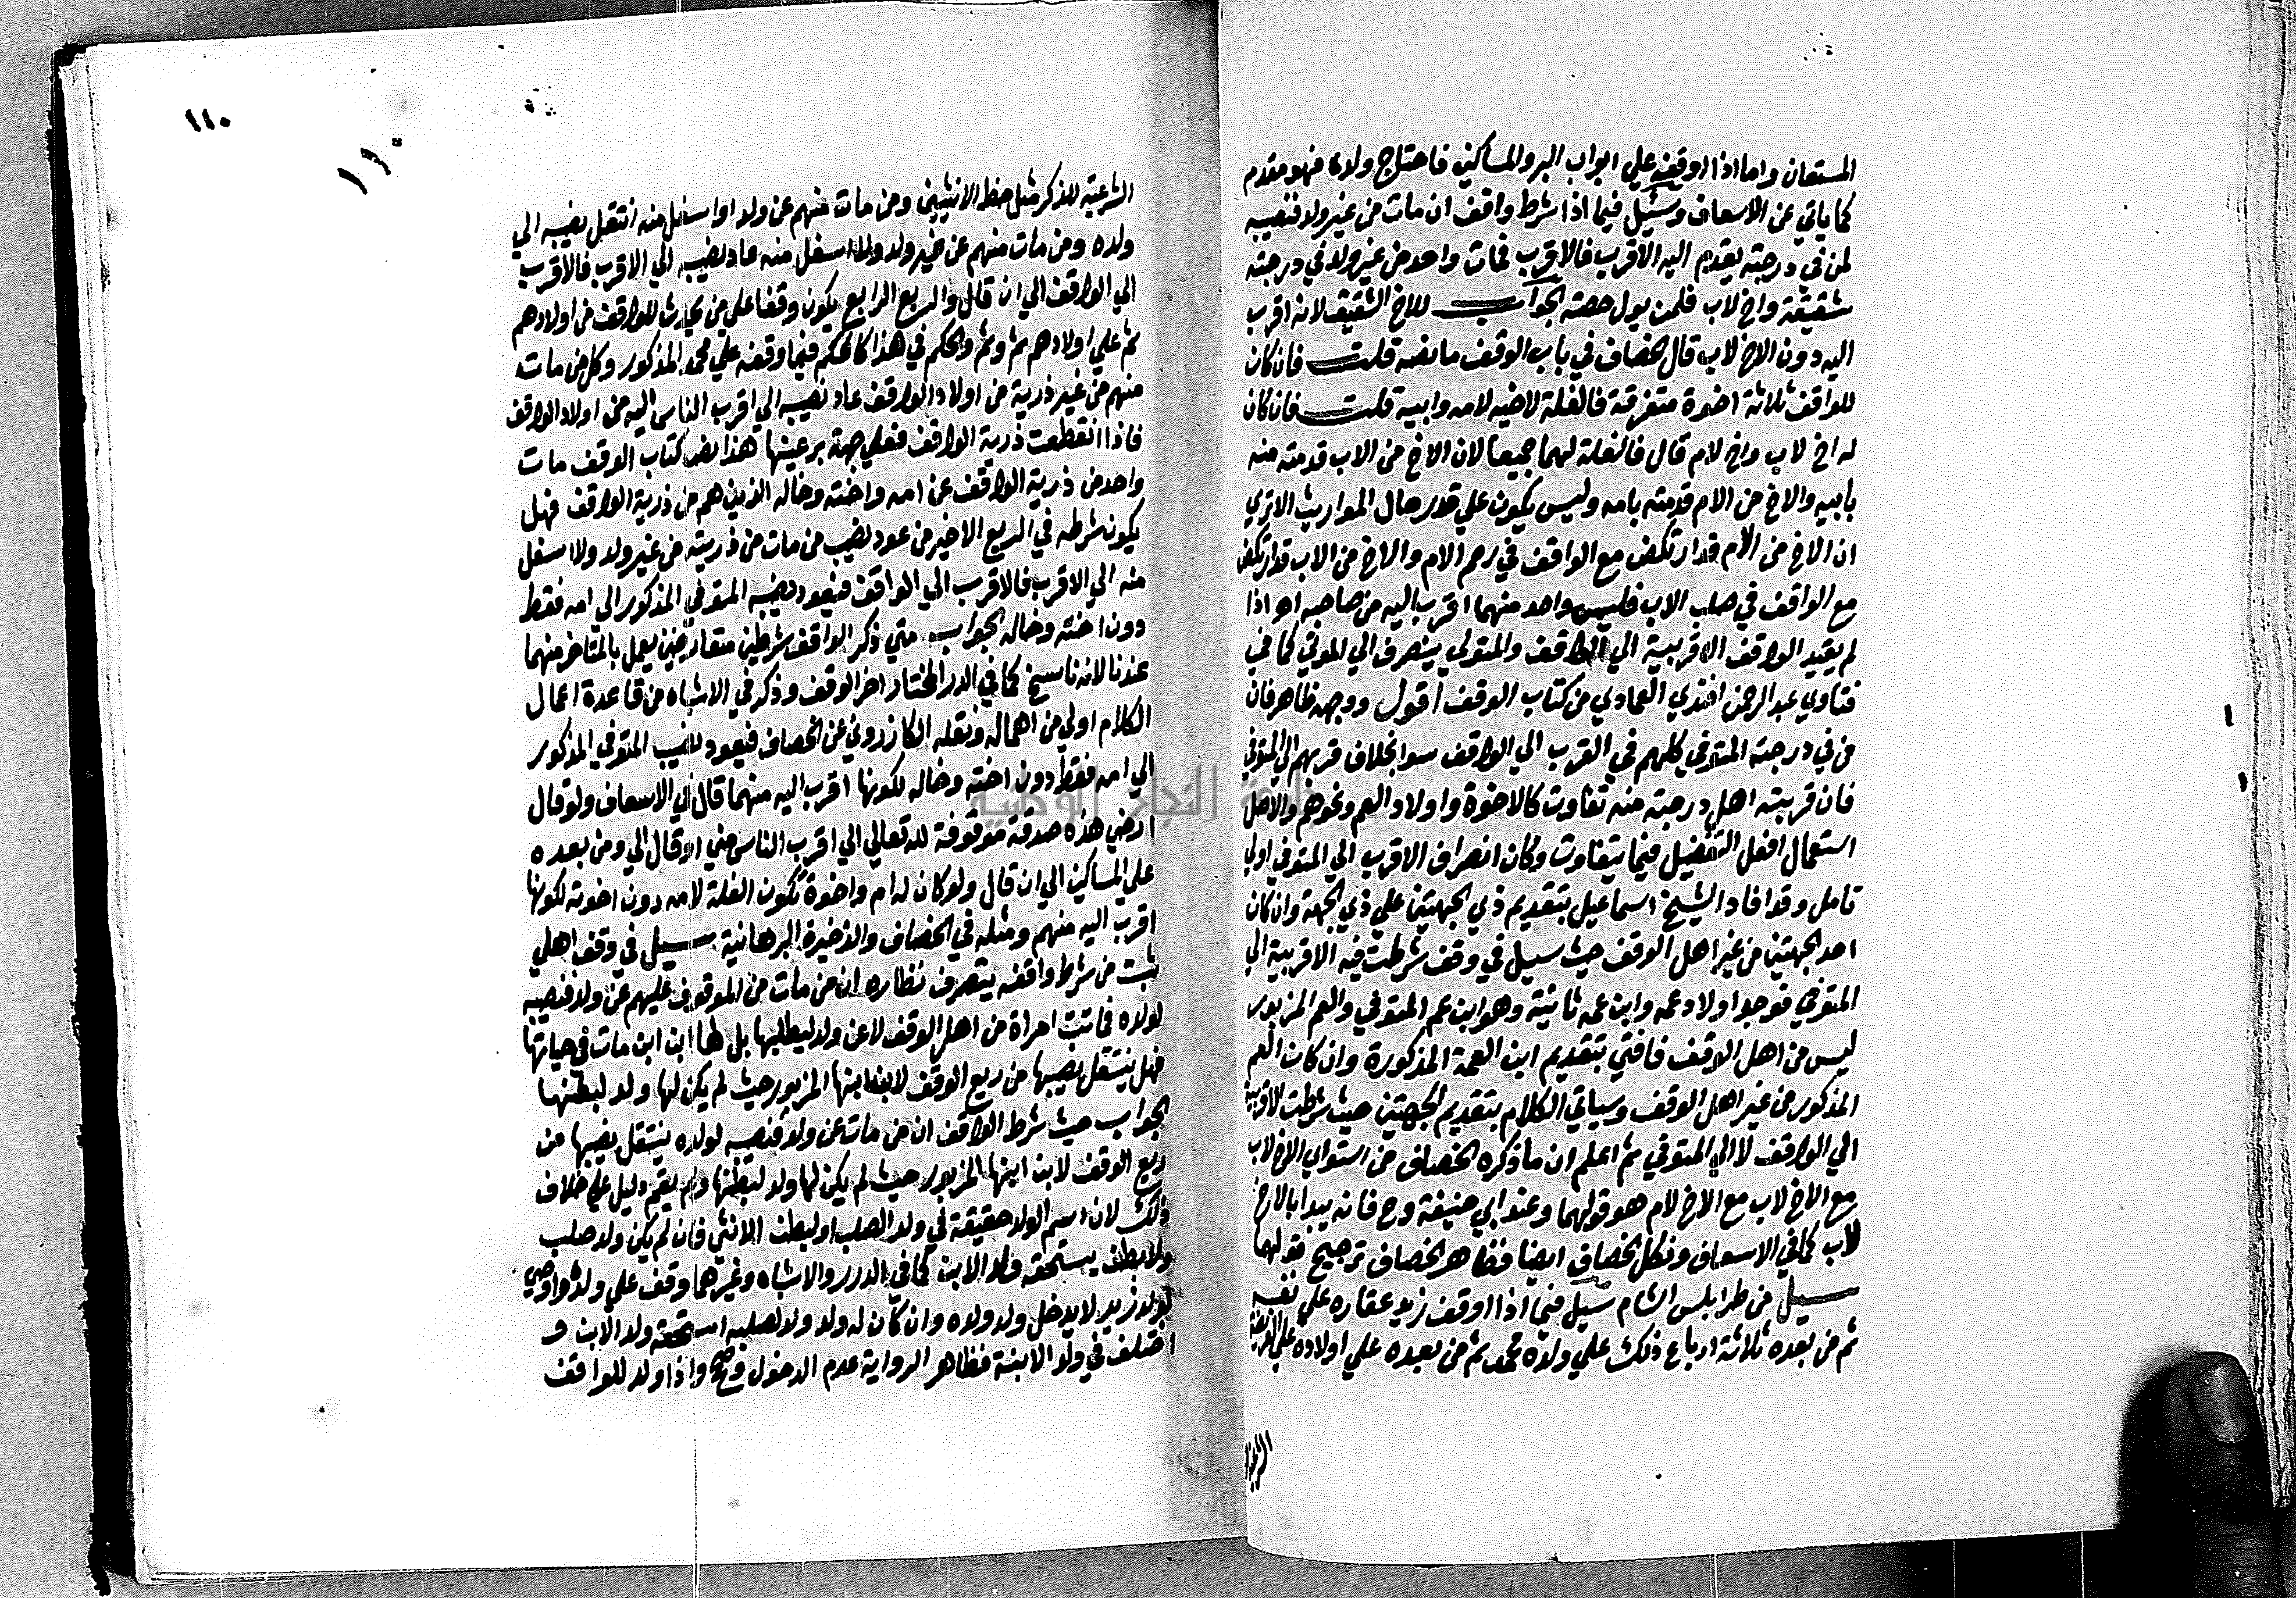 المستعان واما اذا اوقف علي ابواب البر والمساكين فاحتاج ولده فهو مقدم
كما ياتي عن الاسعاف وسئيل فيما اذا شرط واقف ان مات من غير ولد فنصيبه
لمن في درجته يقدم اليه الاقرب فالاقرب فمات واحد من غير ولد في درجته
شقيقة واخ لاب فلمن يول حصته الجواب للاخ الشقيق لانه اقرب
اليه دون الاخ لاب قال الخصاف في باب الوقف ما نصه قلت فان كان
للواقف ثلاثة اخوة متفرقة فالغلة لاخيه لامه وابيه قلت فان كان
له اخ لاب واخ لام قال فالغلة لهما جميعا لان الاخ من الاب قدمته منه
بابيه والاخ من الام قدمته بامه وليس يكون علي قدر حال المواريث الاتري
ان الاخ من الام قد ارتكض مع الواقف في رحم الام والاخ من الاب قد ارتكض
مع الواقف في صلب الاب فليس واحد منهما اقرب اليه من صاحبه اه اذا
لم يقيد الواقف الاقربية الي الواقف والمتولي ينصرف الي الموتي كما في
فتاوي عبد الرحمن افندي العمادي من كتاب الوقف اقول ووجهه ظاهر فان
من في درجة المتوفي كلهم في القرب الي الواقف سوا بخلاف قربهم الي المتوفي
فان قربيته اهل درجته منه تفاوت كالاخوة واولاد العم ونحوهم والاصل
استعمال افعل التفضيل فيما يتفاوت وكان انصراف الاقرب الي المتوفي اولي
تامل وقد افاد الشيخ اسماعيل بتقديم ذي الجهتين علي ذي الجهة وان كان
احد الجهتين من غير اهل الوقف حيث سيل في وقف شرطت فيه الاقربية الي
المتوفي فوجد اولاد عمه وابن عمه ثانية وهو ابن عم المتوفي والعم المزبور
ليس من اهل الوقف فافتي بتقديم ابن العمة المذكورة وان كان العم
المذكور من غير اهل الوقف وسياتي الكلام بتقديم الجهتين حيث شرطت الاقربية
الي الواقف لا الي المتوفي ثم اعلم ان ما ذكره الخصاف من استواي الاخ لاب
مع الاخ لاب مع الاخ لام هو قولهما وعند ابي حنيفة وح فانه يبدا بالاخ
لاب كما في الاسعاف ونكل الخصاف ايضا فظاهر الخصاف ترجيح قولهما
سيل من طرابلس الشام سيل فيما اذا اوقف زيد عقاره علي نفسه
ثم من بعده ثلاثة ارباع ذلك علي ولده محمد ثم من بعده علي اولاده علي الفريضة
الشرعية
١١٠
١١٠
الشرعية للذكر مثل حظ الانثيين ومن مات منهم عن ولد او اسفل منه انتقل نصيبه الي
ولده ومن مات منهم عن غير ولد ولا اسفل منه عاد نصيبه الي الاقرب فالاقرب
الي الواقف الي ان قال والربع الرابع يكون وقفا علي من يحارث للواقف من اولادهم
ثم علي اولادهم ثم وثم والحكم في هذا كالحكم فيما وقفه علي محمد المذكور وكل من مات
منهم من غير ذرية من اولاد الواقف عاد نصيبه الي اقرب الناس اليه من اولاد الواقف
فاذا انقطعت ذرية الواقف فعلي جهة بر عينها هذا نص كتاب الوقف مات
واحد من ذرية الواقف عن امه واخته وخاله الذين هم من ذرية الواقف فهل
يكون شرطه في الربع الاخير من عود نصيب من مات من ذريته من غير ولد ولا اسفل
منه الي الاقرب فالاقرب الي الواقف فيعود نصيبه المتوفي المذكور الي امه فقط
دون اخته وخاله الجواب متي ذكر الواقف شرطين متعارضين يعمل بالمتاخر منهما
عندنا لانه ناسخ كما في الدر المختار اخر الوقف وذكر في الاشباه من قاعدة اعمال
الكلام اولي من اهماله ونقله الكازروني عن الخصاف فيعود نصيب المتوفي المذكور
الي امه فقط دون اخته وخاله لكونها اقرب اليه منهما قال في الاسعاف ولو قال
ارضي هذه صدقة موقوفة لله تعالي الي اقرب الناس مني او قال الي ومن بعده
علي المساكين الي ان قال ولو كان له ام واخوة تكون الغلة لامه دون اخوته لكونها
اقرب اليه منهم ومثله في الخصاف والذخيرة البرهانية سيل في وقف اهلي
ثبت من شرط واقفه بتصرف نظاره ان من مات من الموقوف عليهم عن ولد فنصيبه
لولاده فماتت امراة من اهل الوقف لا عن ولد لبطنها بل لها ابن ابن مات في حياتها
فهل ينتقل نصيبها من ريع الوقف لابن ابنها المزبور حيث لم يكن لها ولد لبطنها
الجواب حيث شرط الواقف ان من مات عن ولد فنصيبه لولاده ينتقل نصيبها من
ريع الوقف لابن ابنها المزبور حيث لم يكن لها ولد لبطنها ولم يقم دليل علي خلاف
ذلك لان اسم الولد حقيقة في ولد الصلب او لبطن الانثي فان لم يكن ولد صلب
ولا بطن يستحقه ولد الابن كما في الدرر والاشباه وغيرهما وقف علي ولد واوصي
لولد زيد لا يدخل ولد ولده وان كان له ولد ولد لصلبه استحقه ولد الابن و
اختلف في ولد الابنة فظاهر الرواية عدم الدخول وصح واذا ولد للواقف